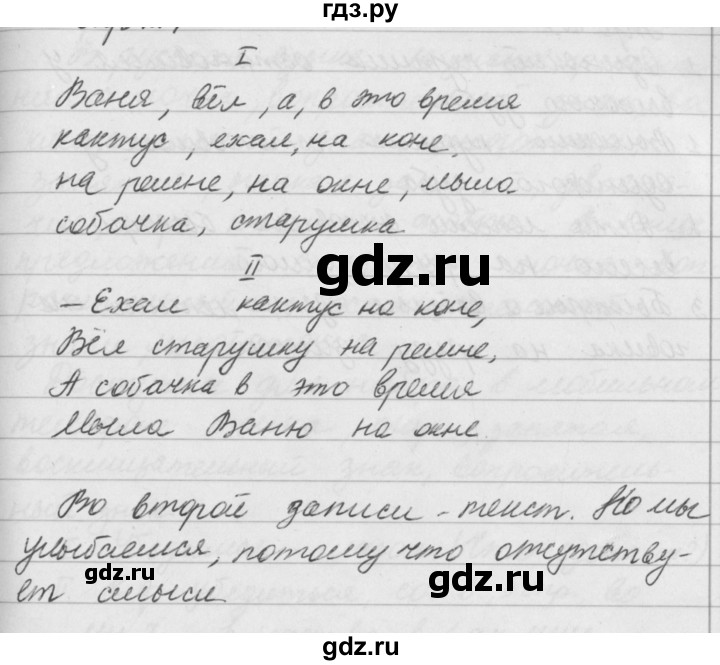 гдз.ру
I
Ваня, вёл, а, в это время
кактус, ехал, на коне,
на ремне, на окне, мыла.
собачка, старушка
gdz.ru
II
– Ехал кактус на коне,
Вёл старушку на ремне,
А собачка в это время
Мыла Ваню на окне.
Во второй записи – текст. Но мы
улыбаемся, потому что отсутству-
ет смысл
gdz.ru
gdz.ru
gdz.ru